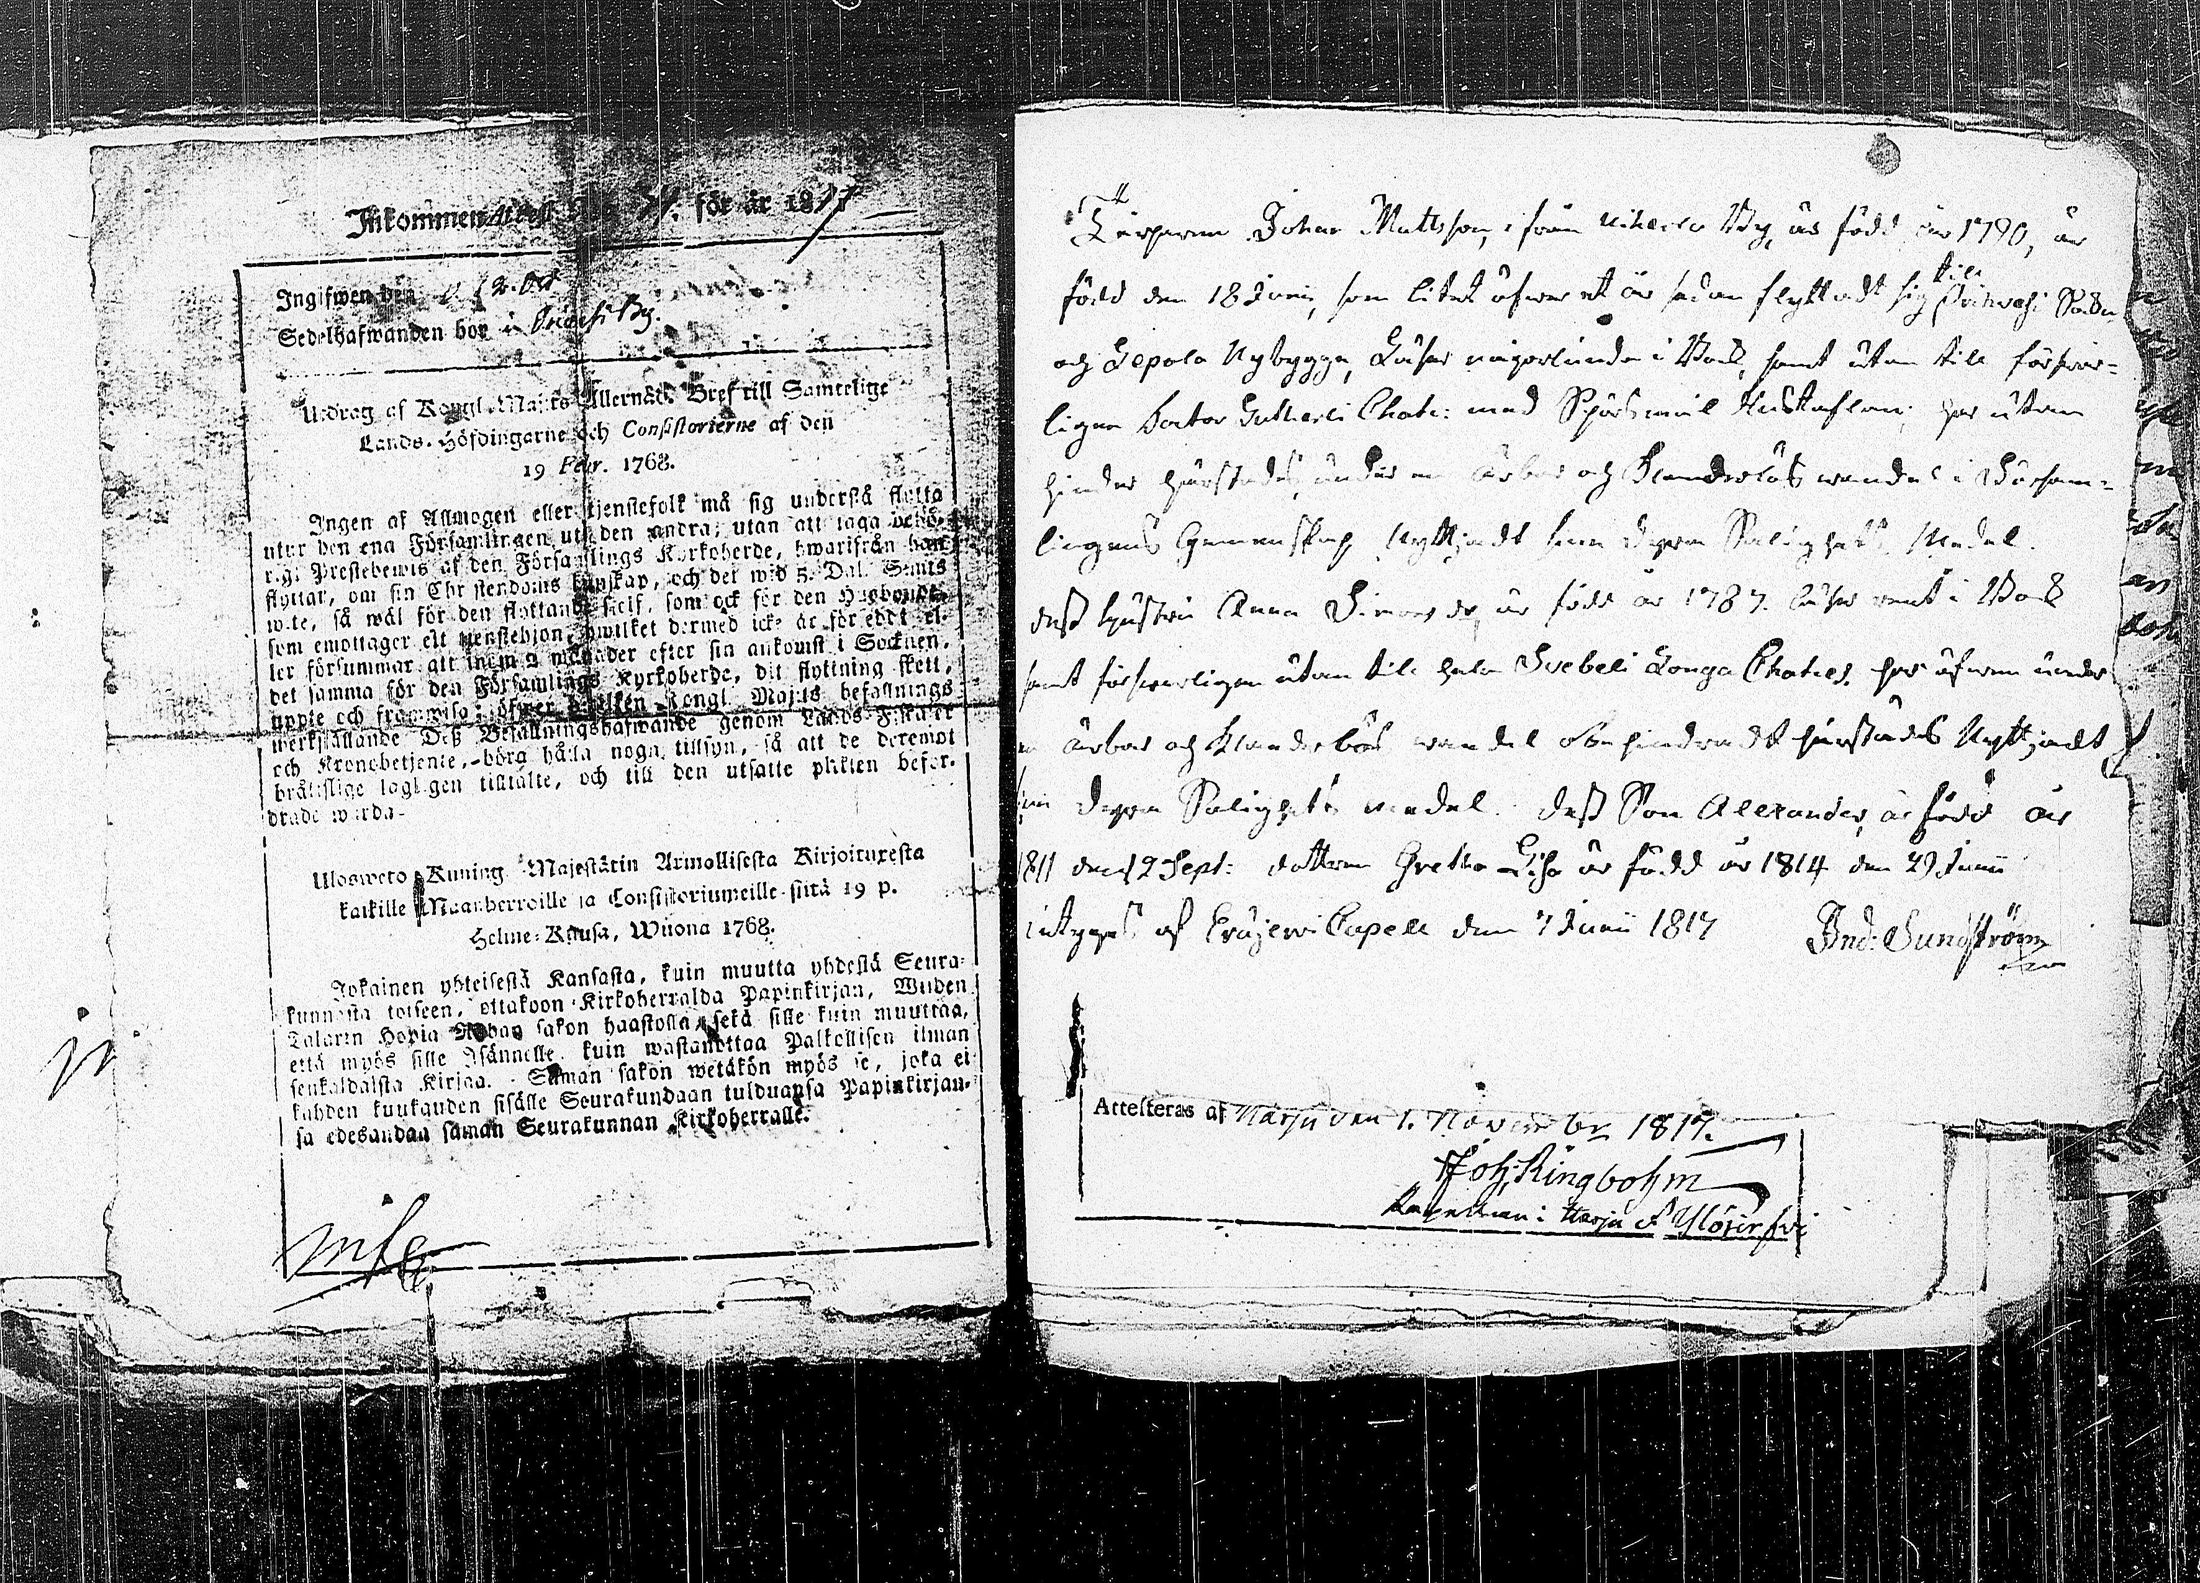 Inkommen Attest N:o 71. för år 1817
Ingifwen den 12. Oct
Sedelhafwanden bor i By.
Utdrag af Kongl. Maj:ts Allernåd. Bref till Samtelige
Lands-Höfdingarne och Consistorierne af den
19 Febr. 1768.
Ingen af Allmogen eller tjenstefolk må sig understå flytta
utur den ena Församlingen uti den andra, utan att taga behö-
rigt Prestebewis af den Församlings Kyrkoherde, hwarifrån han
flyttar, om sin Christendoms kunskap, och det wid 5. Dal. Smts
wite, så wäl för den flyttande sielf, som ock för den Husbonde,
som emottager ett tjenstehjon, hwilket dermed icke är försedt el-
ler försummar att inom 2 månader efter sin ankomst i Socknen,
det samma för den Församlings Kyrkoherde, dit flyttning skett,
uppte och framwisa; öfwer hwilken Kongl. Maj:ts befallnings
werkställande Deß Befallningshafwande genom Lands-Fiskaler
och Kronobetjente, böra hålla noga tillsyn, så att de deremot
bråttslige lagligen tilltalte, och till den utsatte plikten befor-
drade warda.
Uloswето Kuning. Majestätin Armollisesta Kirjoituxesta
kaikille Maanherroille ja Consistoriumeille siitä 19 p.
Helme-Kuusa, Wuona 1768.
Jokainen yhteisestä Kansasta, kuin muutta yhdestä Seura-
kunnasta toiseen, ottakoon Kirkoherralda Papinkirjan, Wiiden
Talarin Hopia Rahan sakon haastolla, sekä sille kuin muuttaa,
että myös sille Isännelle, kuin wastanottaa Palkollisen ilman
senkaldaista Kirjaa. Saman sakon wetäkön myös se, joka ei
kahden kuukauden sisälle Seurakundaan tulduansa Papinkirjan-
sa edesandaa saman Seurakunnan Kirkoherralle.
Johan Mattsson, ifrån By, är född år 1790, är
född den 18 Junii, som litet öfwer et år sedan flyttadt sig till
och Sepola Nybygge, Läser någorlunda i Bok, samt utan till förswar-
ligen Doctor Lutherli Chate: med Spörsmål Hustaflan; har utan
hinder härstädes, under en ärbar och klanderlös wandel i Församl-
lingens Gemenskap, Nyttjadt sine dyra Salighets Medel.
deß hustru Anna är född år 1787. läser rent i Bok
samt förswarligen utan till hela Svebeli Longa Chates. har äfwen under
en ärbar och klanderlös wandel obehindradt härstädes Nyttjadt
sin dyra Salighets medel. Deß Son Alexander, är född år
1811 den 12 Sept: dottren Gretha Lisa är född år 1814 den 29 Junii
intygas af Eräjerwi Capell den 7 Junii 1817 And: Sundström
Attesteras af Harju den 1. November 1817.
Joh. Ringbohm
Capellan i Harju & Ylöjerfvi